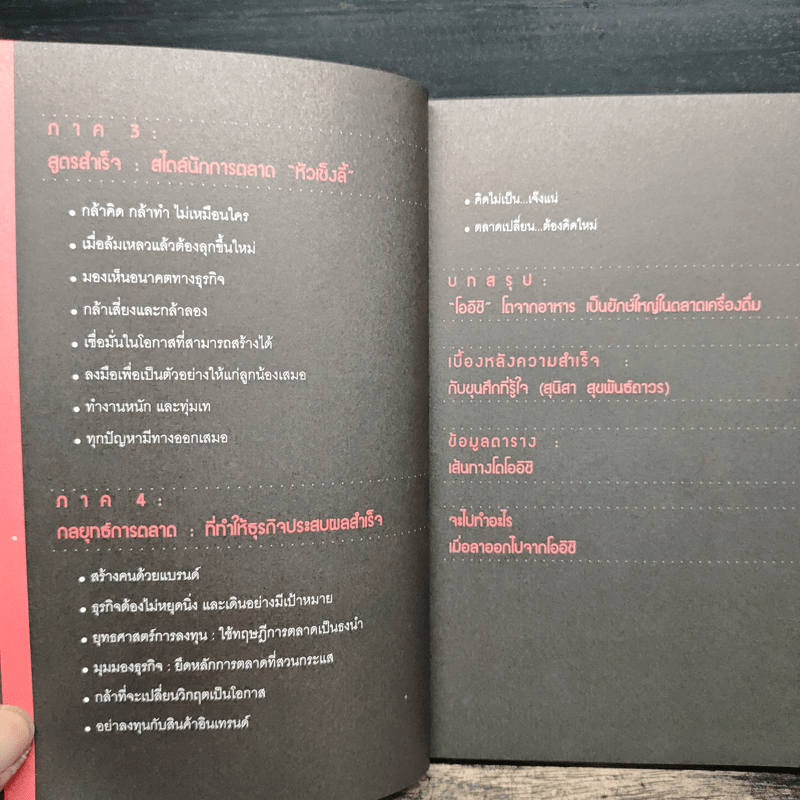 ภาค 3 :
สูตรสำเร็จ : สไตล์นักการตลาด "หัวเซ็งลี้"
• กล้าคิด กล้าทำ ไม่เหมือนใคร
• เมื่อล้มเหลวแล้วต้องลุกขึ้นใหม่
• มองเห็นอนาคตทางธุรกิจ
• กล้าเสี่ยงและกล้าลอง
• เชื่อมั่นในโอกาสที่สามารถสร้างได้
• ลงมือเพื่อเป็นตัวอย่างให้แก่ลูกน้องเสมอ
• ทำงานหนัก และทุ่มเท
• ทุกปัญหามีทางออกเสมอ
ภาค 4 :
กลยุทธ์การตลาด : ที่ทำให้ธุรกิจประสบผลสำเร็จ
• สร้างคนด้วยแบรนด์
• ธุรกิจต้องไม่หยุดนิ่ง และเดินอย่างมีเป้าหมาย
• ยุทธศาสตร์การลงทุน : ใช้ทฤษฎีการตลาดเป็นธงนำ
• มุมมองธุรกิจ : ยึดหลักการตลาดที่สวนกระแส
• กล้าที่จะเปลี่ยนวิกฤตเป็นโอกาส
• อย่าลงทุนกับสินค้าอินเทรนด์
• คิดไม่เป็น...เจ๊งแน่
• ตลาดเปลี่ยน...ต้องคิดใหม่
บทสรุป :
"โออิชิ" โตจากอาหาร เป็นยักษ์ใหญ่ในตลาดเครื่องดื่ม
เบื้องหลังความสำเร็จ :
กับขุนศึกที่รู้ใจ (สุนิสา สุขพันธ์ถาวร)
ข้อมูลตาราง :
เส้นทางโตโออิชิ
จะไปทำอะไร
เมื่อลาออกไปจากโออิชิ